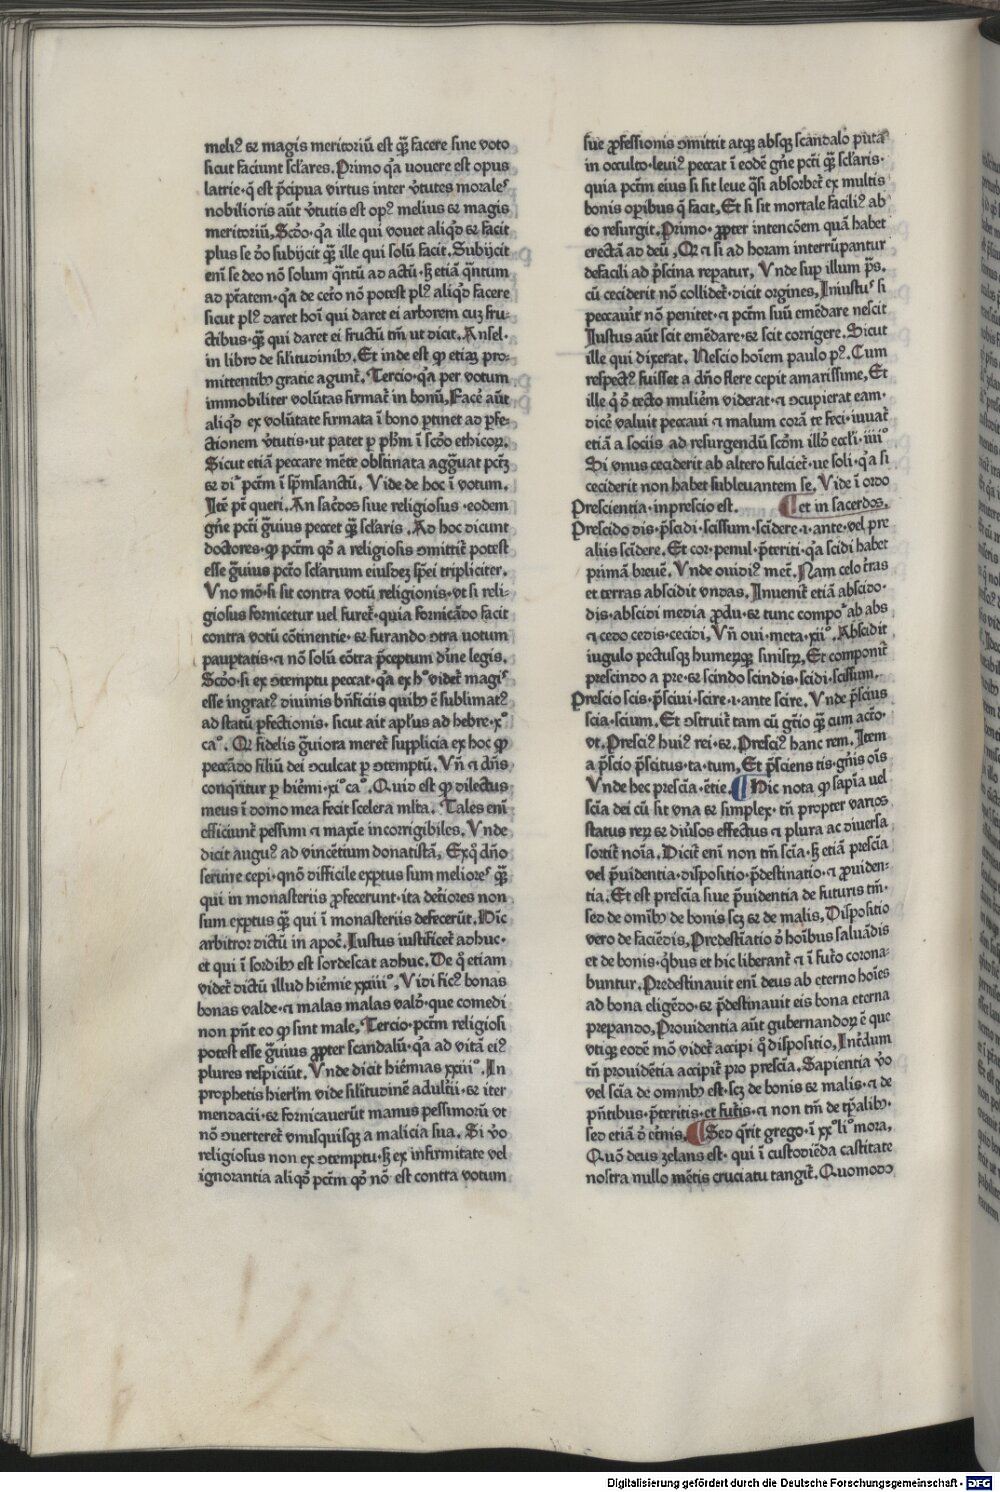 meli⁹ ⁊ magis meritoriū est q̄̄ facere sine voto
sicut faciunt sclares. Primo q̇a uouere est opus
latrie·q̄ est p̄cipua virtus inter v̓tutes moraleˢ
nobilioris aūt v̓tutis est op⁹ melius ⁊ magis
meritoriū, Scd̓o·q̇a ille qui vouet aliqd̓ ⁊ facit
plus se d̓o subijcit q̄̄ ille qui solū facit. Subijcit
eni se deo nō solum q̄ntū ad actū·ꝫ etiā q̄ntum
ad p̄tatem·q̇a de cet̓o nō potest pl⁹ aliqd̓ facere
sicut pl⁹ daret hoī qui daret ei arborem cuꝫ fru⸗
ctibus·q̄̄ qui daret ei fructū tm̄ ut dicit. Ansel·
in libro de silitudinibꝫ. Et inde est ꝙ etiaꝫ pro⸗
mittentibꝫ gratie agunt̄. Tercio·q̇a per votum
immobiliter volūtas firmat̄ in bonū, Facē aūt
aliqd̓ ex volūtate firmata ī bono ꝑtinet ad ꝑfe⸗
ctionem v̓tutis·ut patet ꝑ pb̄m ī scd̓o ethicoꝝ.
Sicut etiā peccare mēte obstinata agg̃uat pctꝫ
⁊ diʳ pctm̄ ī spm̄sanctū. Vide de hoc ī votum.
Itē pt̄ queri. An sac̓dos siue religiosus·eodem
gn̄e pcti g̃uius peccet q̄̄ sclaris. Ad hoc dicunt
doctores·ꝙ pctm̄ qd̓ a religiosis ꝯmittit̄ potest
esse g̃uius pcto sclarium eiusdeꝫ spei tripliciter.
Vno mō·si sit contra votū religionis·vt si reli⸗
giosus fornicetur uel furet̄·quia fornicādo facit
contra votū cōtinentie·⁊ furando ꝯtra uotum
paupertatis·⁊ nō solū cōtra p̄ceptum diu̓e legis.
Scd̓o·si ex ꝯtemptu peccat·q̇a ex hᵒ videt̄ magiˢ
esse ingrat⁹ diuinis bn̄ficiis quibꝫ ē sublimat⁹
ad statū ꝑfectionis. sicut ait aplus ad hebre·xᵒ
caᵒ. Qꝫ fidelis g̃uiora meret̄ supplicia ex hoc ꝙ
peccādo filiū dei ꝯculcat ꝑ ꝯtemptū. Vn̄ ⁊ dn̄s
conq̄ritur ꝑ hiēmi·xiᵒ caᵒ. Quid est ꝙ dilectus
meus ī domo mea fecit scelera mlta. Tales eni
efficiunt̄ pessimi ⁊ maxie incorrigibiles. Vnde
dicit augu⁹ ad vincētium donatistā, Exq̇ dn̄o
seruire cepi·qnō difficile exptus sum melioreˢ q̄̄
qui in monasteriis ꝓfecerunt·ita det̓iores non
sum exptus q̄̄ qui ī monasteriis defecerūt. Hic
arbitror dictū in apoc̄. Iustus iustificet̄ adhuc·
et qui ī sordibꝫ est sordescat adhuc. De q̄ etiam
videt̄ dictū illud hiēmie xxiiiiᵒ, Vidi fic⁹ bonas
bonas valde·⁊ malas malas vald̓·que comedi
non pn̄t eo ꝙ sint male, Tercio·pctm̄ religiosi
potest esse g̃uius ꝓpter scandalū·q̇a ad vitā ei⁹
plures respiciūt. Vnde dicit hiēmias xxiiiᵒ. In
prophetis hierlm̄ vide silitudinē adult̓ii·⁊ iter
mendacii·⁊ fornicauerūt manus pessimorū vt
nō ꝯuerteret̄ vnusquisqꝫ a malicia sua. Si v̓o
religiosus non ex ꝯtemptu·ꝫ ex infirmitate vel
ignorantia aliqd̓ pctm̄ qd̓ nō est contra votum
sue ꝓfessionis ꝯmittit atqꝫ absqꝫ scandalo puta
in occulto·leui⁹ peccat ī eodē gn̄e pcti q̄̄ sclaris·
quia pctm̄ eius si sit leue q̄si absorbet̄ ex multis
bonis operibus q̄ facit, Et si sit mortale facili⁹ ab
eo resurgit. Primo·ꝓpter intencōem quā habet
erectā ad deū, Q̄ ⁊ si ad horam interrūpantur
defacili ad p̄scina repatur, Vnde suꝑ illum p̄s.
cū ceciderit nō collidet̄·dicit orgines, Iniustuˢ si
peccauit nō penitet·⁊ pctm̄ suū emēdare nescit
Iustus aūt scit emēdare·⁊ scit corrigere. Sicut
ille qui dixerat. Nescio hoīem paulo p⁹. Cum
respect⁹ fuisset a dn̄o flere cepit amarissime, Et
ille q̇ d̓ tecto muliēm viderat·⁊ ꝯcupierat eam·
dicē valuit peccaui ⁊ malum corā te feci·iuuat̄
etiā a sociis ad resurgendū scd̓m illd̓ eccli·iiiiᵒ
Si vnus ceciderit ab altero fulciet̄·ue soli·q̇a si
ceciderit non habet subleuantem se. Vide ī ordo
Prescientia·inprescio est. ¶ et in sacerdos.
Prescido dis·p̄scidi·scissum·scidere·i·ante·vel pre
aliis scidere. Et cor·penul·p̄teriti·q̇a scidi habet
primā breuē. Vnde ouidi⁹ met̄. Nam celo t̄ras
et terras abscidit vndas. Inuenit̄ etiā abscido·
dis·abscidi media ꝓdu·⁊ tunc compoᵗ ab abs
⁊ cedo cedis·cecidi, Vn̄ oui·meta·xiiᵒ. Abscidit
iugulo pectusqꝫ humerqꝫ sinistꝝ, Et componit̄
prescindo a pre·⁊ scindo scindis·scidi·scissum.
Prescio scis·p̄sciui·scire·i·ante scire. Vnde p̄scius
scia·scium. Et ꝯstruit̄ tam cū gt̄io q̄̄ cum actō·
vt. Presci⁹ hui⁹ rei·⁊. Presci⁹ hanc rem. Item
a p̄scio p̄scitus·ta·tum, Et p̄sciens tis·gn̄is oīs
Vnde hec prescia·ētie. ¶ Hic nota ꝙ sapīa uel
scia dei cū sit vna ⁊ simplex·tn̄ propter varios
status reꝝ ⁊ diu̓sos effectus ⁊ plura ac diuersa
sortit̄ noia. Dicit̄ eni non tm̄ scia·ꝫ etiā prescia
vel p̄uidentia·dispositio·p̄destinatio·⁊ ꝓuiden⸗
tia. Et est prescia siue p̄uidentia de futuris tm̄·
sed de omibꝫ de bonis scꝫ ⁊ de malis, Dispositio
vero de faciēdis, Predestiatio d̓ hoibus saluādis
et de bonis·q̇bus et hic liberant̄ ⁊ ī fut̓o corona⸗
buntur. Predestinauit eni deus ab eterno hoies
ad bona eligēdo·⁊ p̄destinauit eis bona eterna
preparando, Prouidentia aūt gubernandoꝝ ē que
vtiqꝫ eodē mō videt̄ accipi q̇ dispositio, Int̓dum
tn̄ prouidētia accipit̄ pro prescia. Sapientia v̓o
vel scia de omibꝫ est·scꝫ de bonis ⁊ malis·⁊ de
pn̄tibus·p̄teritis·et fut̓is·⁊ non tm̄ de tpalibꝫ·
sed etiā d̓ et̓nis. ¶ Sed q̄rit grego·ī xxᵒ liᵒ mora,
Quō deus zelans est·qui ī custodiēda castitate
nostra nullo mētis cruciatu tangit̄. Quomodo
Digitalisierung gefördert durch die Deutsche Forschungsgemeinschaft · DFG